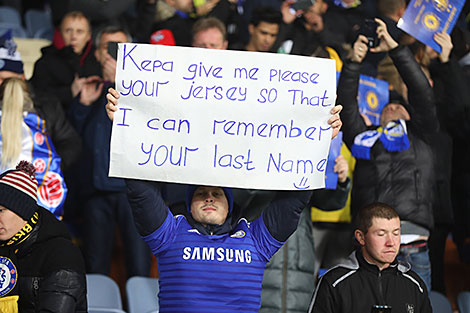 Kepa give me Please
your jersey so That
I can remember
your last Name
SAMSUNG